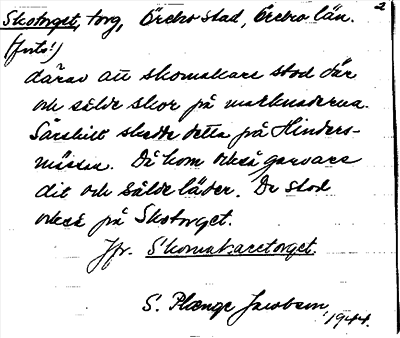 2
Skotorget, torg, Örebro stad, Örebro län.
(forts.)
därav att skomakare stod där
och sålde skor på marknaderna.
Särskilt skedde detta på Hinders-
mässan. Då kom också garvare
dit och sålde läder. De stod
också på Skotorget.
Jfr. Skomakaretorget.
S. Plænge Jacobson
1944.